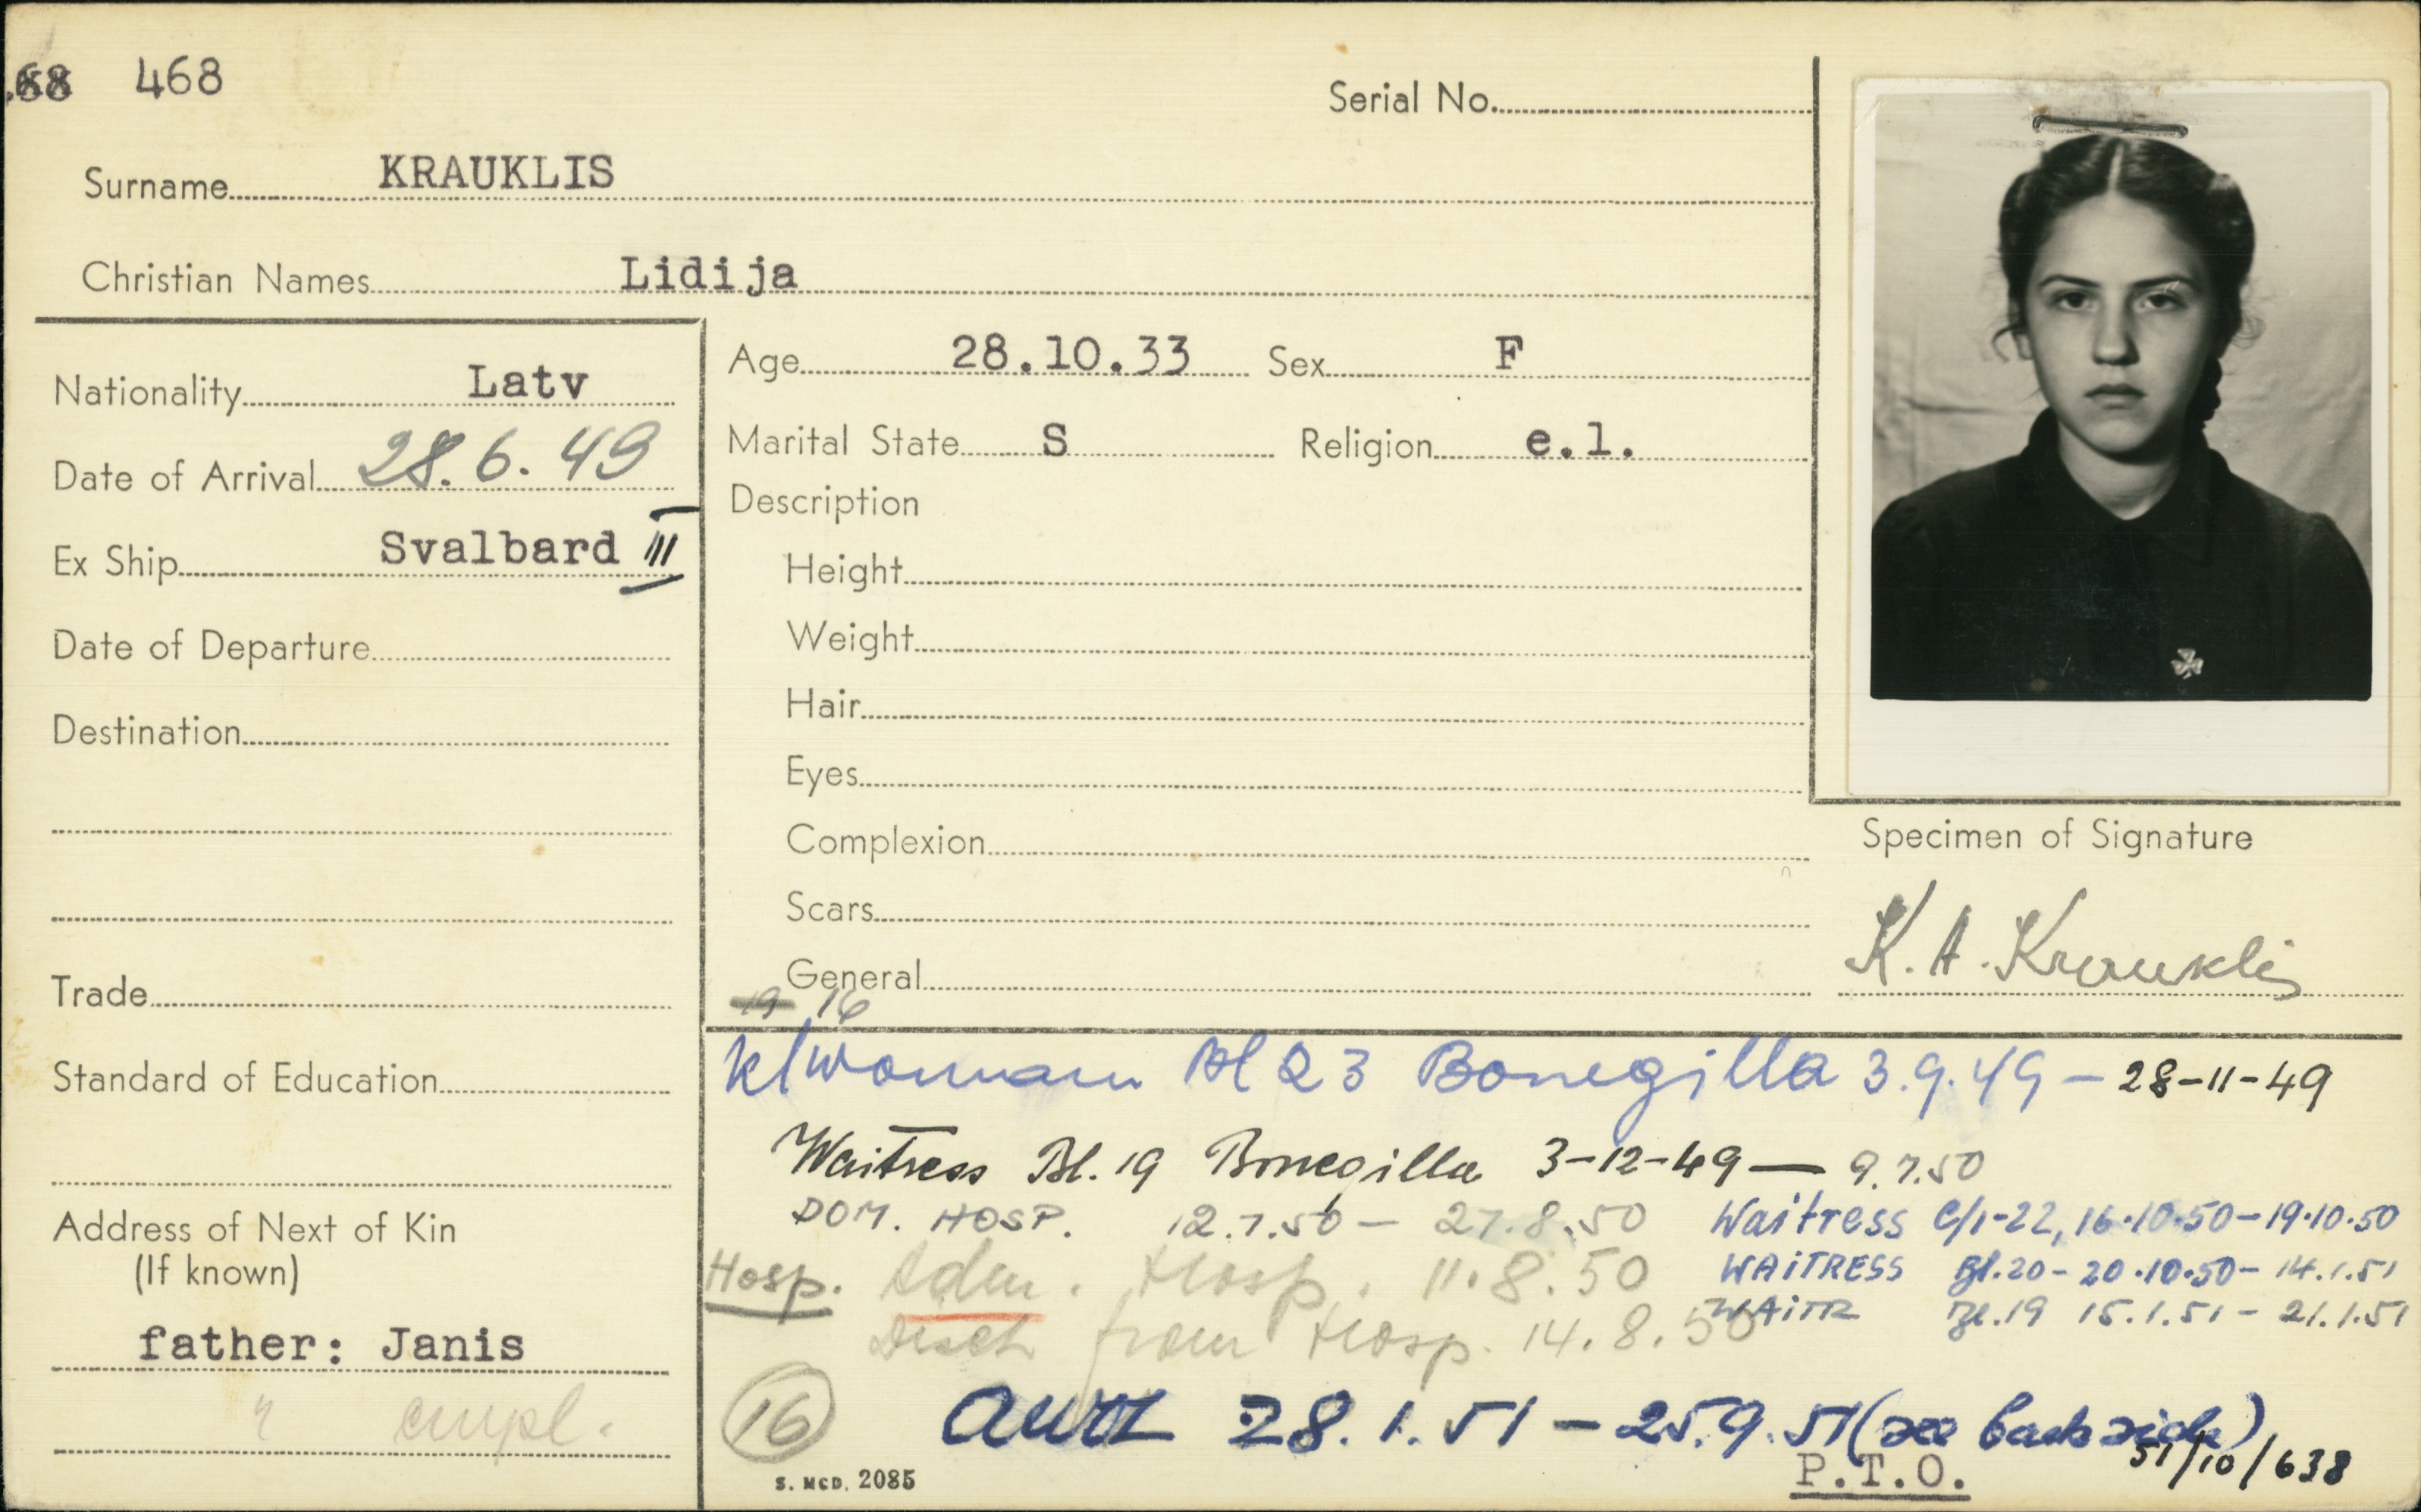 68 468
Serial No.
Surname KRAUKLIS
Christian Names Lidija
Nationality Latv
Date of Arrival 28.6.49
Ex Ship Svalbard III
Date of Departure
Destination
Trade
Standard of Education
Address of Next of Kin
(If known)
father: Janis
" empl.
Age 28.10.33 Sex F
Marital State S Religion e.l.
Description
Height
Weight
Hair
Eyes
Complexion
Scars
General
19 16
Specimen of Signature
K. A. Krauklis
k/woman Bl 23 Bonegilla 3.9.49 – 28-11-49
Waitress Bl. 19 Bonegilla 3-12-49 — 9.7.50
DOM. HOSP. 12.7.50 – 27.8.50
Hosp. Adm. Hosp. 11.8.50
Disch from Hosp. 14.8.50
Waitress C/1-22, 16.10.50 – 19.10.50
WAITRESS Bl.20 – 20.10.50 – 14.1.51
WAITR Bl.19 15.1.51 – 21.1.51
16
28.1.51 – 25.9.51 (see back side)
P.T.O.
51/10/638
S. McD. 2085